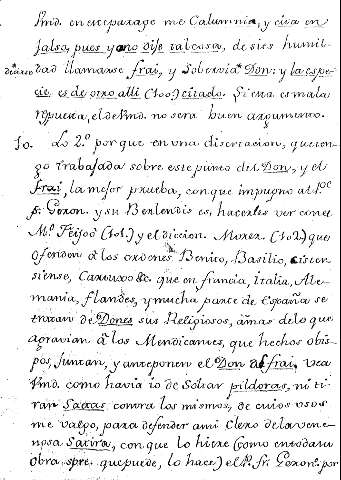 Vmd. en ese parage me Calumnia, y cita en
falso, pues yo no dije tal cosa, de si es humil-
dad llamarse frai, y Sobervia Don: y la espe-
cie es de otro alli (100.) citado. Si era es mala
repuesta, el de Vmd. no sera buen argumento.
10. Lo 2.º por que en una disertacion, que ten-
go trabajada sobre este punto del Don, y el
frai, la mejor prueba, con que impugno al P.e
f. Goron. y su Berlendis es, hacerles ver con el
M.º Feijoò (101.) y el diccion. Morer. (102.) que
ofenden à los ordenes Benito, Basilio, Cister-
siense, Cartuxo &c. que en francia, Italia, Ale-
mania, flandes, y mucha parte de España se
tratan de Dones sus Religiosos, amas de lo que
agravian à los Mendicantes, que hechos obis-
pos, juntan, y anteponen el Don al frai. Vea
Vmd. como havia io de Soltar pildoras, ni ti-
rar Saetas contra los mismos, de cuios usos
me valgo, para defender ami Clero de la vene-
nosa Satira, con que lo hiere (como en toda su
obra spre. que puede, lo hace) el P. fr. Goron. por